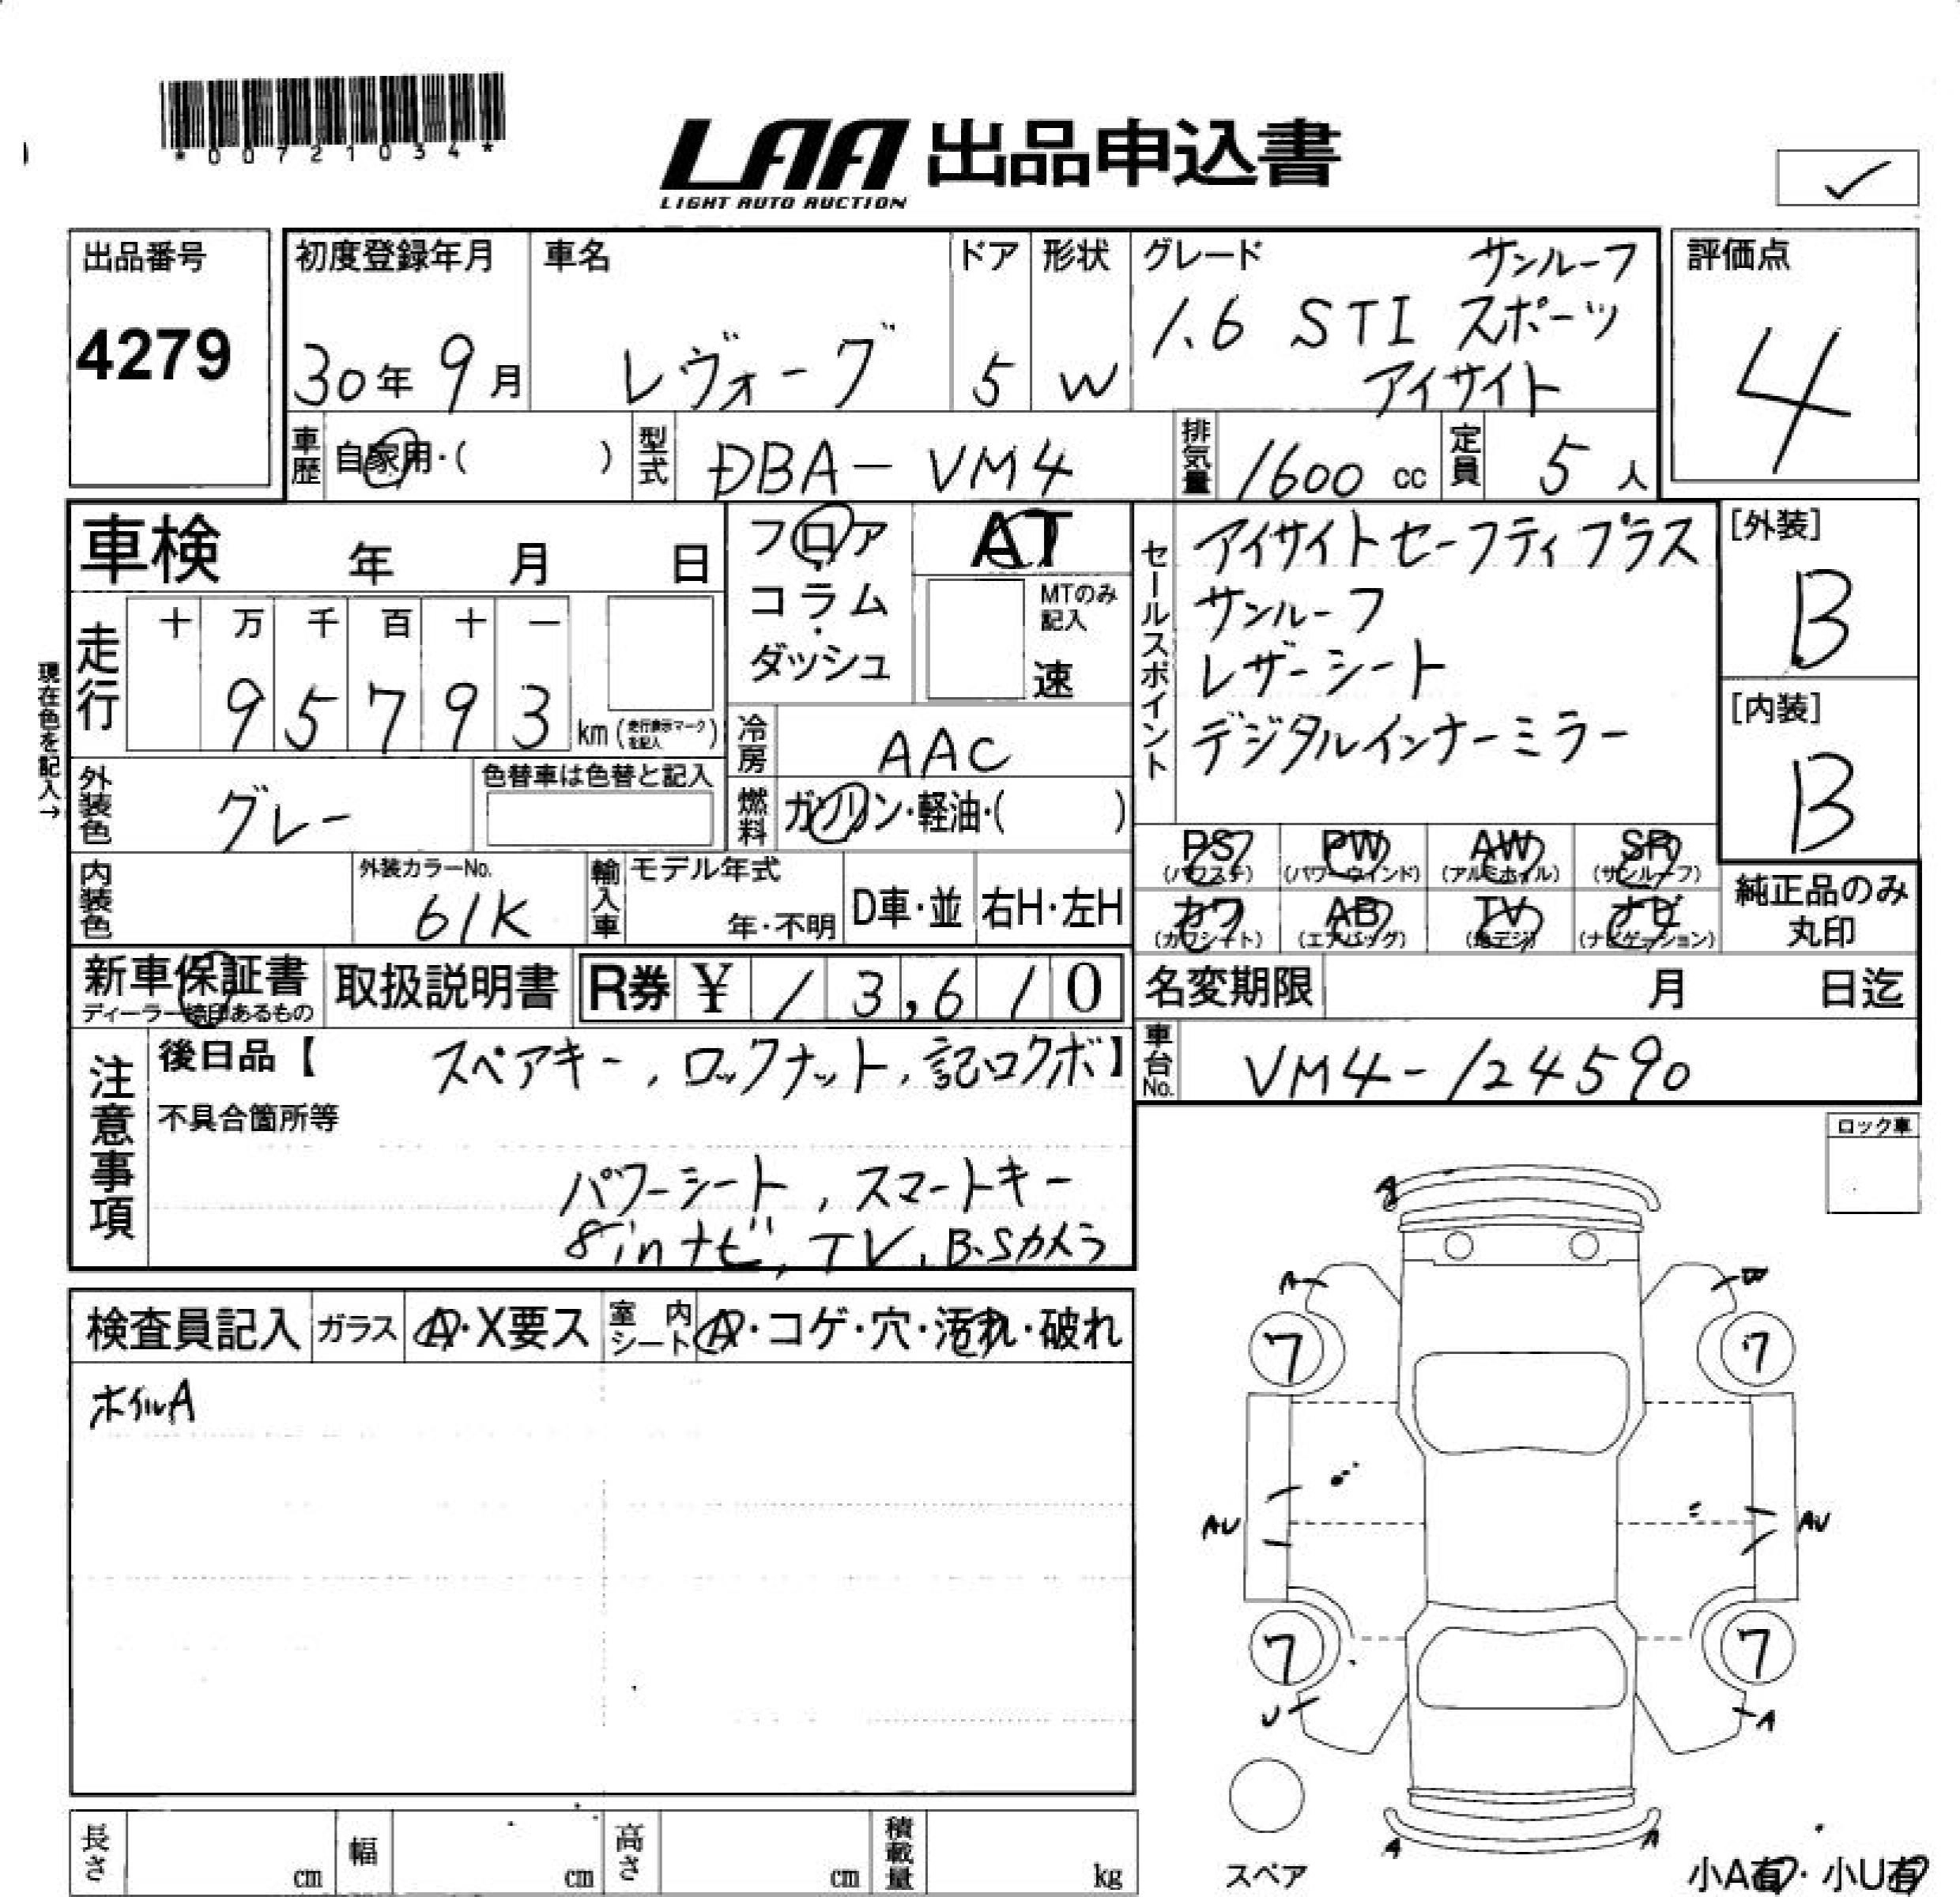 *00721034*
LAA 出品申込書
LIGHT AUTO AUCTION
出品番号
4279
初度登録年月
30年 9月
車名
レヴォーグ
ドア
5
形状
W
グレード
サンルーフ
1.6 STI スポーツ
アイサイト
評価点
4
車歴
自家用・( )
型式
DBA-VM4
排気量
1600 cc
定員
5 人
車検 年 月 日
フロア
・
コラム
・
ダッシュ
AT
MTのみ記入
速
セールスポイント
アイサイトセーフティプラス
サンルーフ
レザーシート
デジタルインナーミラー
[外装]
B
[内装]
B
現在色を記入→
走行
十 万 千 百 十 一
9 5 7 9 3 km (走行表示マークを記入)
冷房
AAC
外装色
グレー
色替車は色替と記入
燃料
ガソリン・軽油・( )
内装色
外装カラーNo.
61K
輸入車
モデル年式
年・不明
D車・並
右H・左H
PS
(パワステ)
PW
(パワーウインド)
AW
(アルミホイル)
SR
(サンルーフ)
カワ
(カワシート)
AB
(エアバッグ)
TV
(地デジ)
ナビ
(ナビゲーション)
純正品のみ
丸印
新車保証書
ディーラー捺印あるもの
取扱説明書
R券 ¥ 1 3,6 1 0
名変期限 月 日迄
車台No.
VM4-124590
注意事項
後日品【 スペアキー, ロックナット, 記ロクボ】
不具合箇所等
パワーシート, スマートキー
8inナビ, TV, B.Sカメラ
ロック車
検査員記入
ガラス
A・X要ス
室内シート
A・コゲ・穴・汚れ・破れ
ホイルA
A
A
W
7
7
AU
AU
7
7
U
A
A
A
スペア
小A有・小U有
長さ cm
幅 cm
高さ cm
積載量 kg